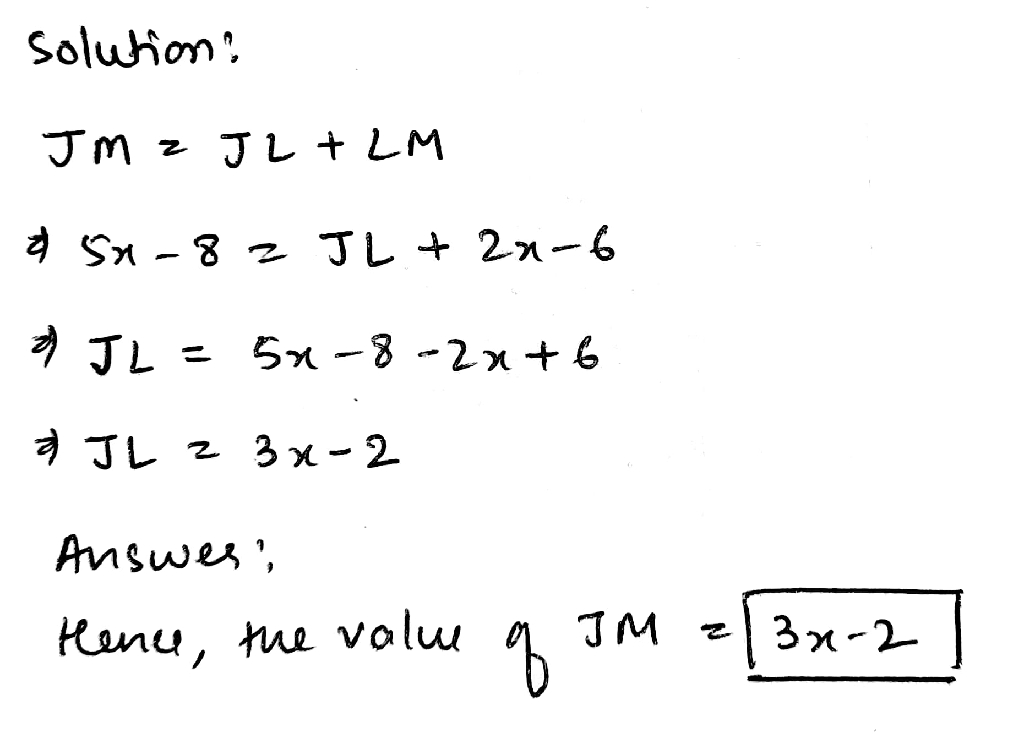 Solution:
JM = JL + LM
⇒ 5x - 8 = JL + 2x - 6
⇒ JL = 5x - 8 - 2x + 6
⇒ JL = 3x - 2
Answer:
Hence, the value of JM = 3x - 2